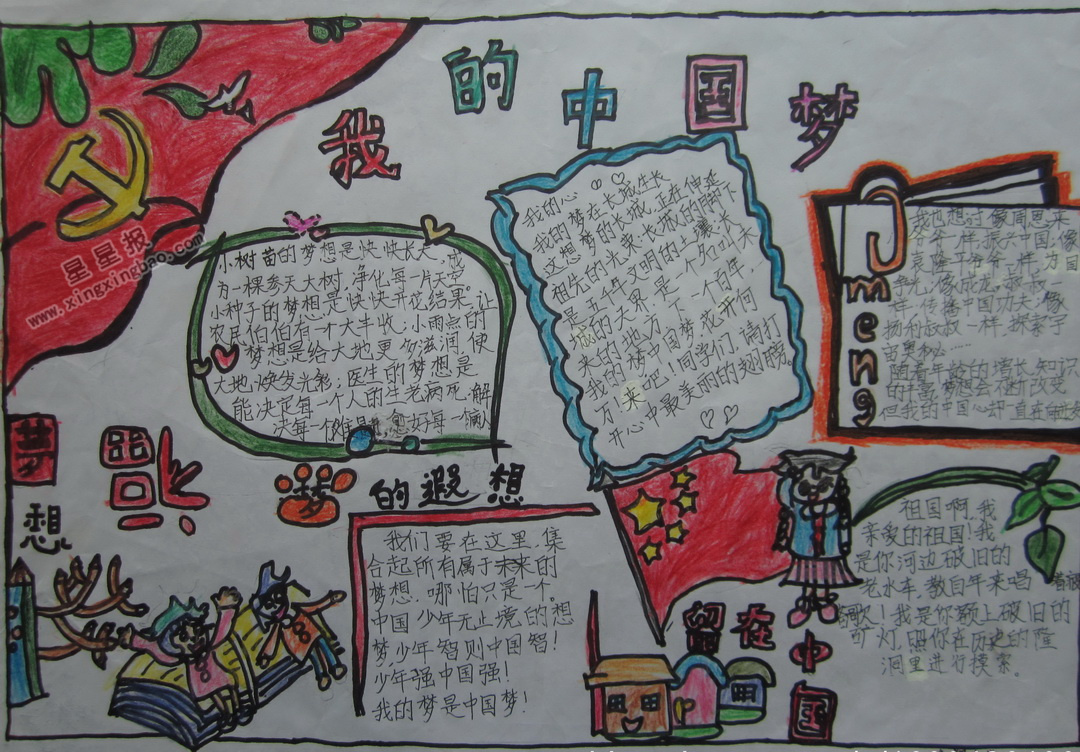 我的中国梦
星星报
www.xingxingbao.com
小树苗的梦想是快快长大,成
为一棵参天大树,净化每一片天空
小种子的梦想是快快开花结果。让
农民伯伯有一个大丰收;小雨点的
梦想是给大地更多滋润,使
大地焕发光彩;医生的梦想是
能决定每一个人的生老病死,解
决每一个难
愈好每一个病人
我的心
我的梦在长城生长
这想梦的长城,正在伸延
祖先的光来长城的脚下
是五千年文明的土壤,长
城的天界,是一个多叫未
来的地方,下一个百年,
我的被中国梦花开何
方,来吧!同学们,请打
开心中最美丽的翅膀。
meng
我也想过像周恩来
爷爷一样,振兴中国,像
袁隆平爷爷一样,为国
争光,像成龙叔叔一
样,传播中国功夫;像
杨利叔叔一样,探索宇
宙奥秘……
随着年龄的增长,知识
的丰富,梦想会不断改变
但我的中国心却一直在
梦
想
梦的遐想
我们要在这里,集
合起所有属于未来的
梦想.哪怕只是一个。
中国少年无止境的想
梦,少年智则中国智!
少年强中国强!
我的梦是中国梦!
留在中国
祖国啊,我
亲爱的祖国!我
是你河边破旧的
老水车,数百年来唱着疲
歌!我是你额上破旧的
矿灯,照你在历史的隧
洞里进行摸索。